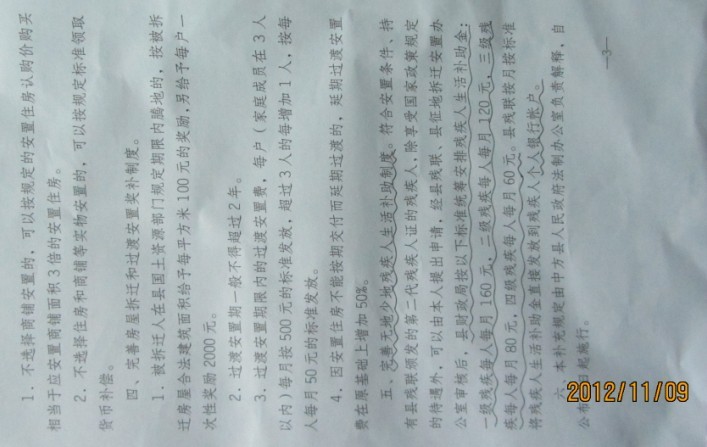 1. 不选择商铺安置的，可以按规定的安置住房认购价购买
相当于应安置商铺面积3倍的安置住房。
2. 不选择住房和商铺等实物安置的，可以按规定标准领取
货币补偿。
四、完善房屋拆迁和过渡安置奖补制度。
1. 被拆迁人在县国土资源部门规定期限内腾地的，按被拆
迁房屋合法建筑面积给予每平方米100元的奖励，另给予每户一
次性奖励2000元。
2. 过渡安置期一般不得超过2年。
3. 过渡安置期限内的过渡安置费，每户（家庭成员在3人
以内）每月按500元的标准发放，超过3人的每增加1人，按每
人每月50元的标准发放。
4. 因安置住房不能按期交付而延期过渡的，延期过渡安置
费在原基础上增加50%。
五、完善无地少地残疾人生活补助制度。符合安置条件、持
有县残联颁发的第二代残疾人证的残疾人，除享受国家政策规定
的待遇外，可以由本人提出申请，经县残联、县征地拆迁安置办
公室审核后，县财政局按以下标准统筹安排残疾人生活补助金：
一级残疾每人每月160元，二级残疾每人每月120元，三级残
疾每人每月80元，四级残疾每人每月60元。县残联按月按标准
将残疾人生活补助金直接发放到残疾人个人银行帐户。
六、本补充规定由中方县人民政府法制办公室负责解释，自
公布之日起施行。
—3—
2012/11/09